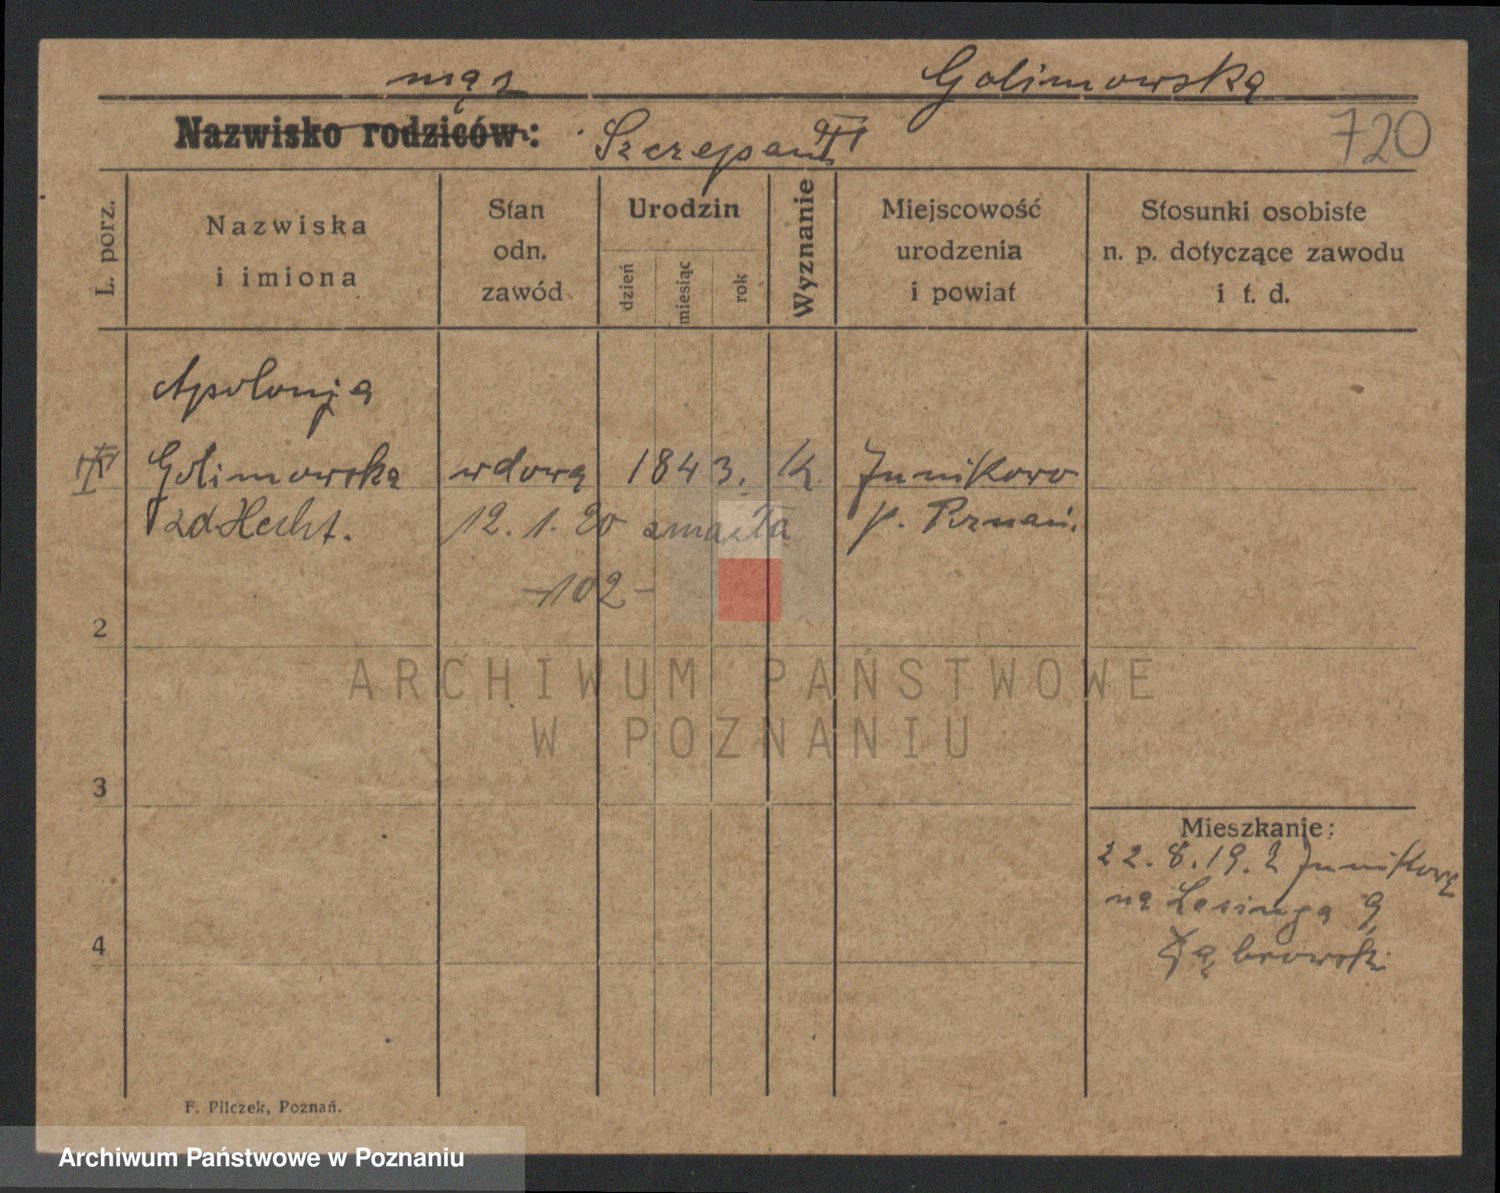 mąż Golimowska
Nazwisko rodziców: Szczepan
720
L. porz.
Nazwiska
i imiona
Stan
odn.
zawód
Urodzin
dzień
miesiąc
rok
Wyznanie
Miejscowość
urodzenia
i powiat
Stosunki osobiste
n. p. dotyczące zawodu
i t. d.
Apolonja
Golimowska wdowa 1843. K. Junikowo
zd Hecht. 12. 1. 20 zmarła p. Poznań.
-102-
2
ARCHIWUM PAŃSTWOWE
W POZNANIU
3
Mieszkanie:
22.8.19. z Junikowa
na Lesinga 9
Dąbrowski
4
F. Pilczek, Poznań.
Archiwum Państwowe w Poznaniu